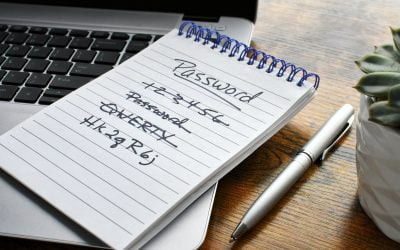 Password
123456
Password
QWERTY
Hk2gR6j